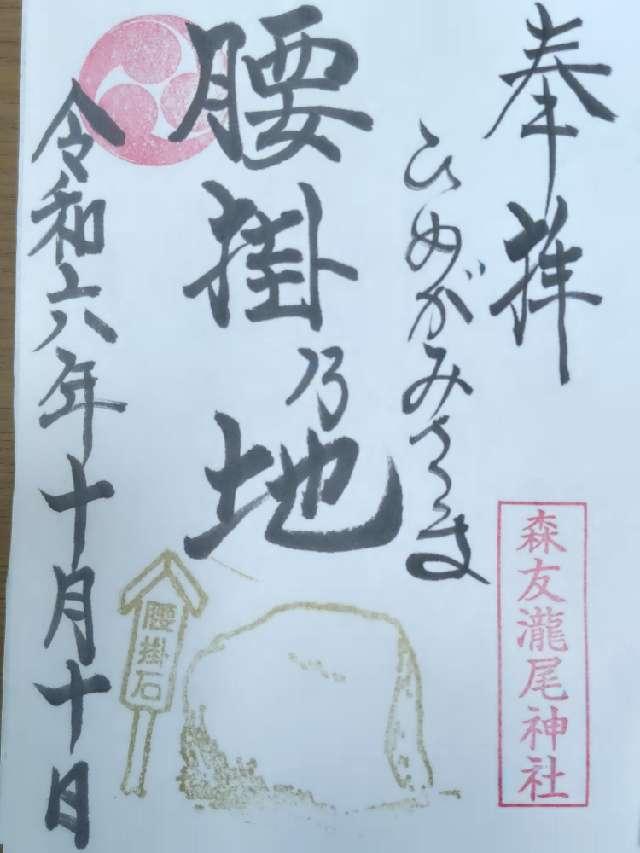 奉拝
ひめがみさま
腰掛乃地
令和六年十月十日
腰掛石
森友瀧尾神社